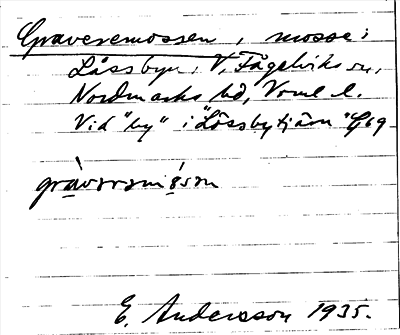 Graveremossen, mosse i
Lässbyn, V. Fågelviks sn,
Nordmarks hd, Vrml. l.
Vid "by" i "Lässbytjärn" G69
E. Andersson 1935.